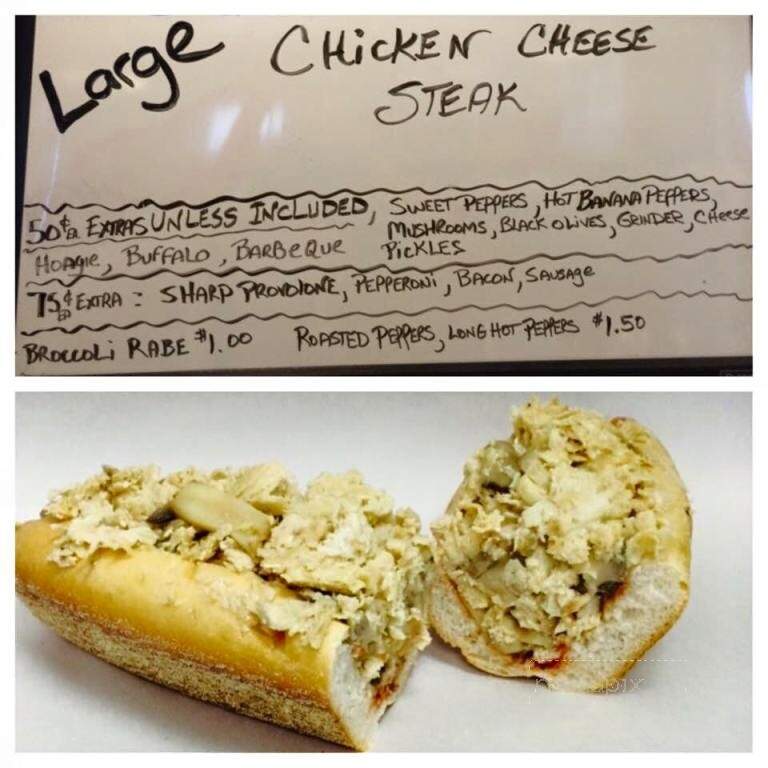 Large CHICKEN CHEESE
STEAK
50¢ EA. EXTRAS UNLESS INCLUDED, SWEET PEPPERS, HOT BANANA PEPPERS,
MUSHROOMS, BLACK OLIVES, GRINDER, CHEESE
HOAGIE, BUFFALO, BARBEQUE PICKLES
75¢ EA EXTRA: SHARP PROVOLONE, PEPPERONI, BACON, SAUSAGE
BROCCOLI RABE $1.00 ROASTED PEPPERS, LONG HOT PEPPERS $1.50